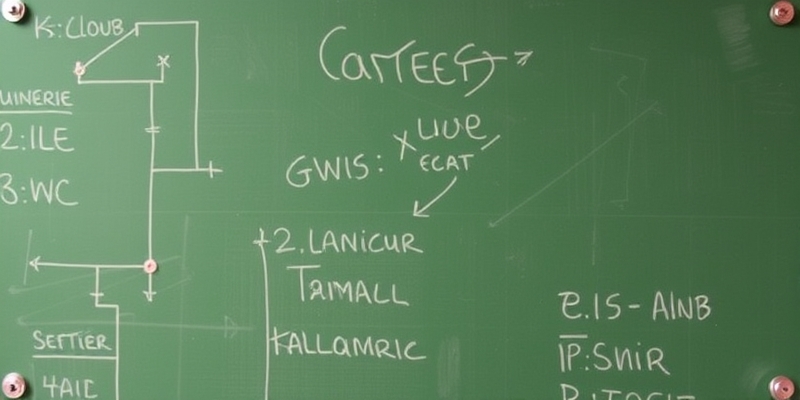 K:CLOUB
UINERIE
2:ILE
3:WC
SETTIER
4AIC
GWIS:
LIUE
ECAT
2.LANICUR
TAMALL
KALLAMRIC
e.IS-AINB
IP:SNIR